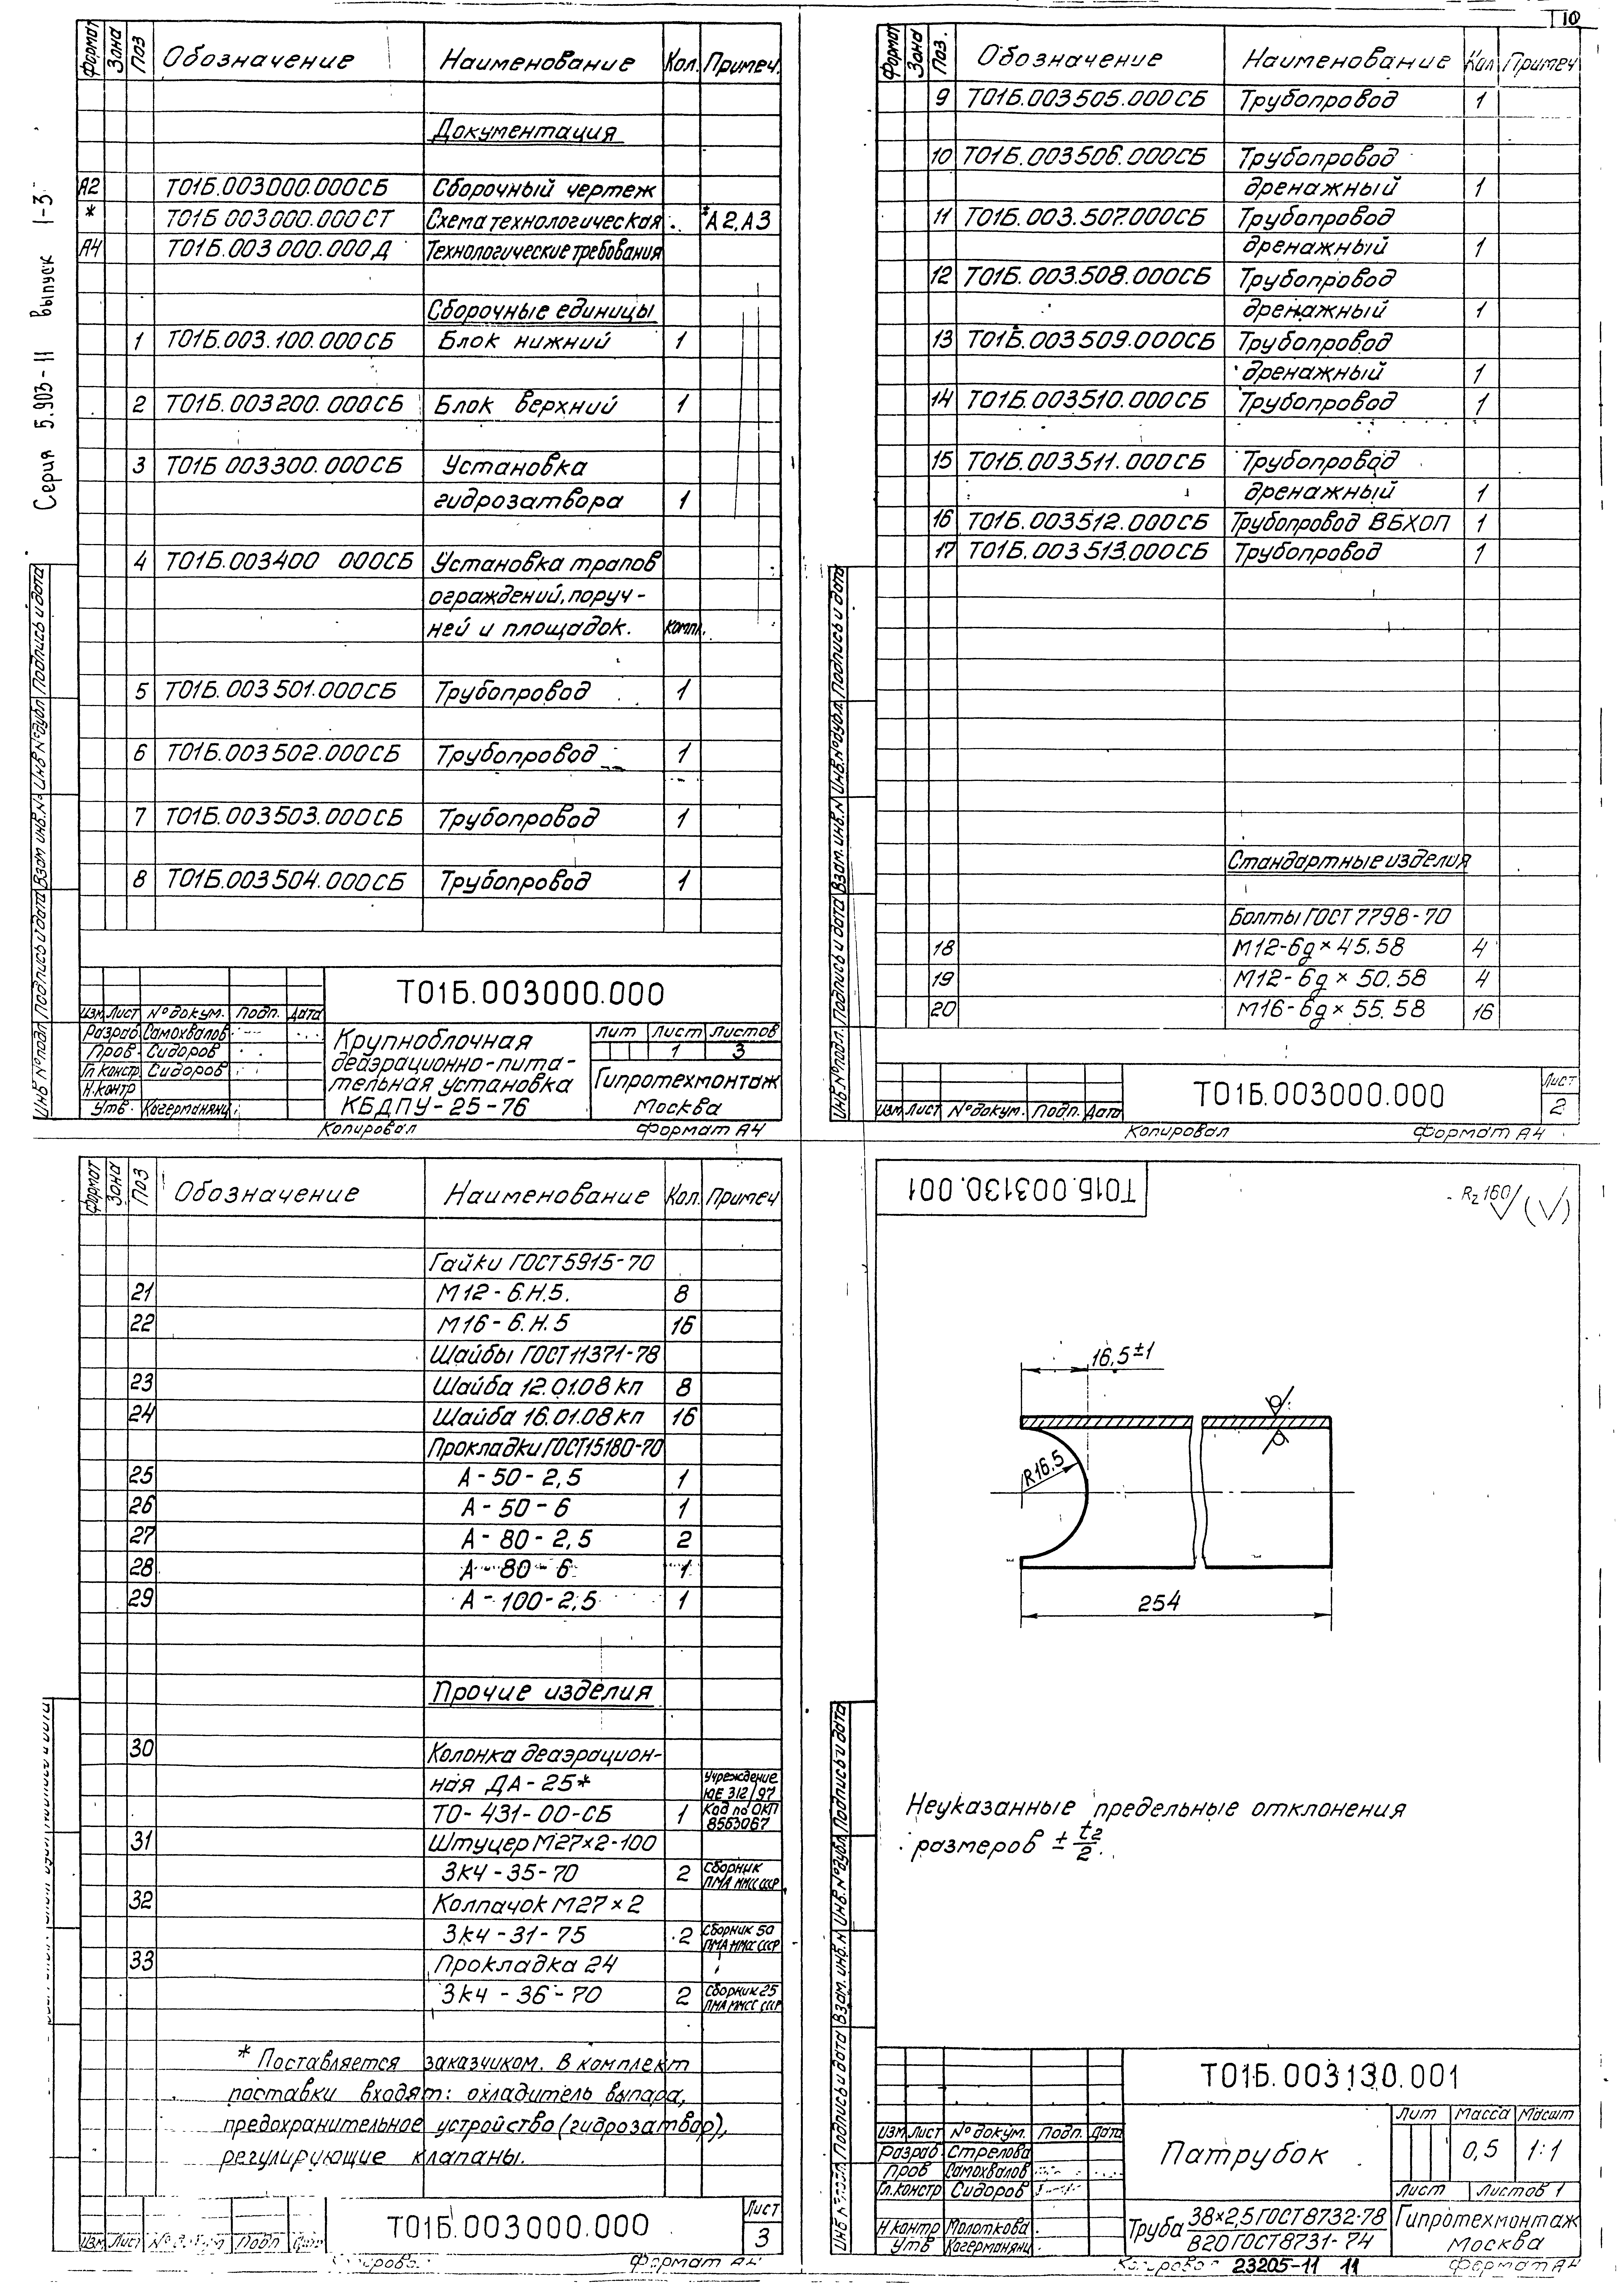 T10
Серия 5.903-11 выпуск 1-3
Формат Зона Поз Обозначение Наименование Кол. Примеч.
Документация
А2 Т01Б.003000.000СБ Сборочный чертеж
* Т01Б 003000.000СТ Схема технологическая *А2,А3
А4 Т01Б.003000.000Д Технологические требования
Сборочные единицы
1 Т01Б.003.100.000СБ Блок нижний 1
2 Т01Б.003200.000СБ Блок верхний 1
3 Т01Б 003300.000СБ Установка
гидрозатвора 1
4 Т01Б.003400 000СБ Установка трапов
ограждений, поруч-
ней и площадок. компл.
5 Т01Б.003501.000СБ Трубопровод 1
6 Т01Б.003502.000СБ Трубопровод 1
7 Т01Б.003503.000СБ Трубопровод 1
8 Т01Б.003504.000СБ Трубопровод 1
Инв №подл Подпись и дата Взам инв.№ Инв №дубл Подпись и дата
Т01Б.003000.000
Изм Лист №докум. Подп. Дата
Разраб Самохвалов
Пров. Сидоров
Гл.констр Сидоров
Н.контр
Утв.
Крупноблочная
деаэрационно-пита-
тельная установка
КБДПУ-25-76
Лит Лист Листов
1 3
Гипротехмонтаж
Москва
Копировал Формат А4
Формат Зона Поз. Обозначение Наименование Кол Примеч
9 Т01Б.003505.000СБ Трубопровод 1
10 Т01Б.003506.000СБ Трубопровод
дренажный 1
11 Т01Б.003.507.000СБ Трубопровод
дренажный 1
12 Т01Б.003.508.000СБ Трубопровод
дренажный 1
13 Т01Б.003509.000СБ Трубопровод
дренажный 1
14 Т01Б.003510.000СБ Трубопровод 1
15 Т01Б.003511.000СБ Трубопровод
дренажный 1
16 Т01Б.003512.000СБ Трубопровод ВБХОП 1
17 Т01Б.003513.000СБ Трубопровод 1
Стандартные изделия
Болты ГОСТ 7798-70
18 М12-6g×45.58 4
19 М12-6g×50.58 4
20 М16-6g×55.58 16
Инв.№подл. Подпись и дата Взам. инв.№ Инв.№дубл. Подпись и дата
Изм Лист №докум. Подп. Дата
Т01Б.003000.000
Лист
2
Копировал Формат А4
Формат Зона Поз Обозначение Наименование Кол. Примеч
Гайки ГОСТ5915-70
21 М12-6.Н.5. 8
22 М16-6.Н.5 16
Шайбы ГОСТ11371-78
23 Шайба 12.01.08кп 8
24 Шайба 16.01.08кп 16
Прокладки ГОСТ15180-70
25 А-50-2,5 1
26 А-50-6 1
27 А-80-2,5 2
28 А-80-6 1
29 А-100-2,5 1
Прочие изделия
30 Колонка деаэрацион-
ная ДА-25* Учреждение ЮЕ 312/97
ТО-431-00-СБ 1 Код по ОКП 8553067
31 Штуцер М27×2-100
ЗК4-35-70 2 Сборник ПМА ММСС СССР
32 Колпачок М27×2
ЗК4-31-75 2 Сборник 50 ПМА ММСС СССР
33 Прокладка 24
ЗК4-36-70 2 Сборник 25 ПМА ММСС СССР
* Поставляется заказчиком. В комплект
поставки входят: охладитель выпара,
предохранительное устройство (гидрозатвор),
регулирующие клапаны.
Изм Лист Подп
Т01Б.003000.000
Лист
3
Формат А4
Т01Б.003130.001
Rz160 (√)
16,5±1
R16,5
254
Неуказанные предельные отклонения
размеров ± t2/2.
Подпись и дата Взам. инв.№ Инв.№дубл Подпись и дата
Т01Б.003130.001
Изм Лист №докум. Подп. Дата
Разраб Стрелова
Пров Самохвалов
Гл.констр Сидоров
Н контр Молоткова
Утв
Патрубок
Лит Масса Масшт
0,5 1:1
Лист Листов 1
Труба 38×2,5 ГОСТ8732-78 / В20 ГОСТ8731-74
Гипротехмонтаж
Москва
23205-11 11
Формат А4